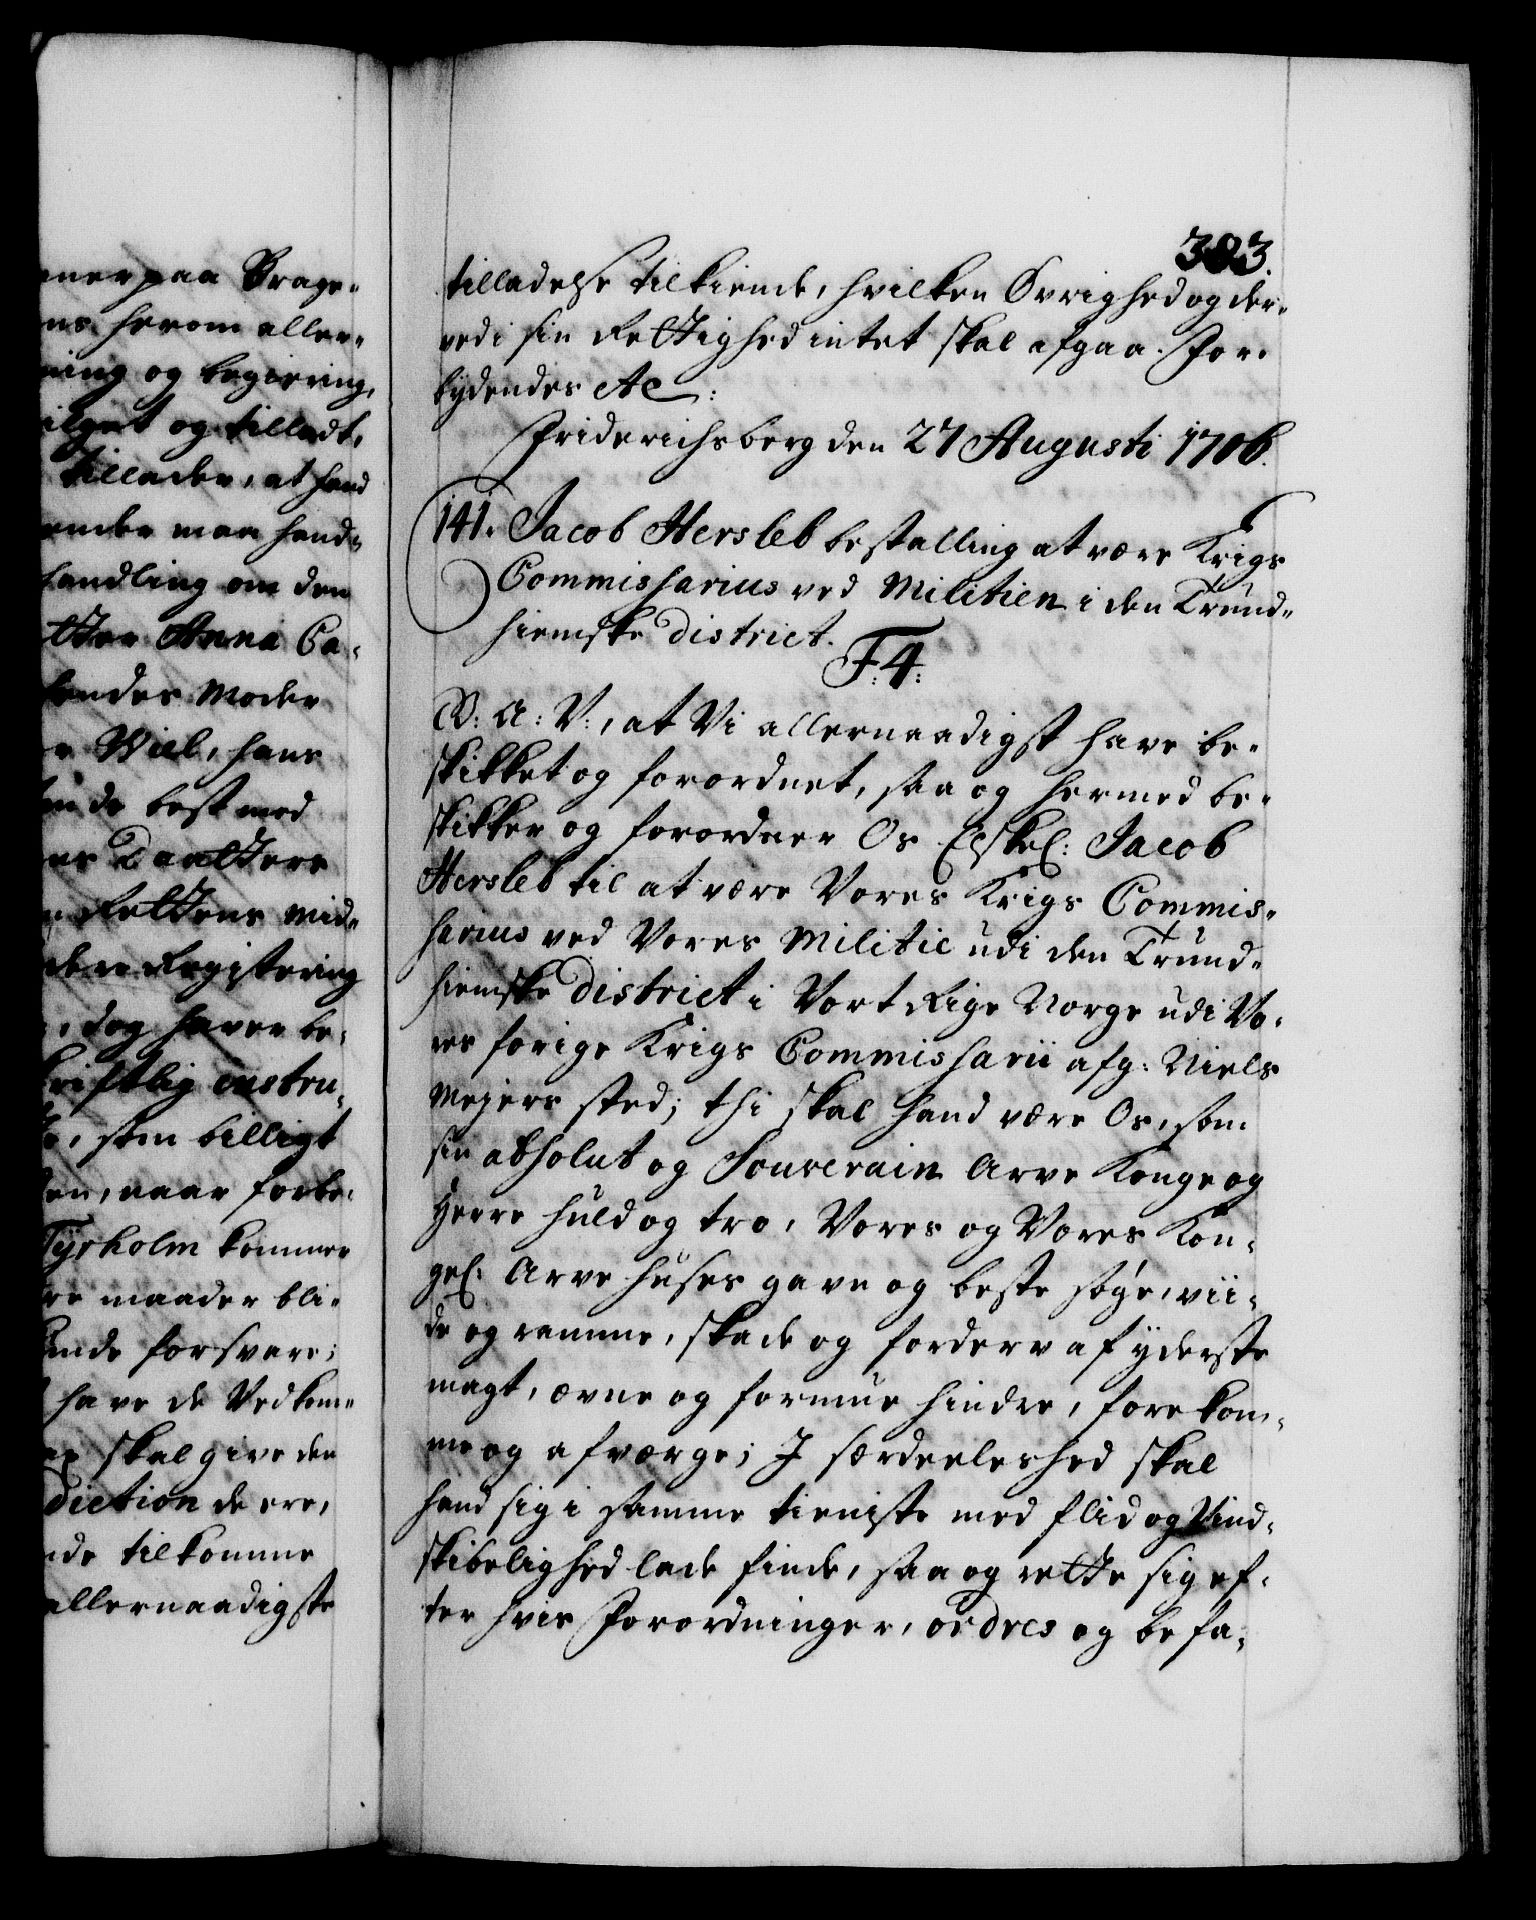 ner paa Brage-
ns herom aller-
ning og begiering,
ilget og tilladt,
tillader, at hand
ender maa hand-
handling om den
tter Anna Ca-
hendes Moder
r Wiel, hans
unde best med
er Daatters
Rettens mid-
dere Registering
, dog haver be-
kriftlig instru-
, som billigt
en, naar forbe-
Tyrholm kommer
re maader bli-
unde forsvare;
have de Vedkom-
skal give den
diction de ere,
nde tilkomme
allernaadigste
383.
tilladelse tilkiende, hvilken Øvrighed og der-
ved i sin Rettighed intet skal afgaa. For-
bydendes etc:
Friderichsberg den 27 Augusti 1706.
141. Jacob Hersleb bestalling at være Krigs
Commissarius ved Militien i den Trund-
hiemske district.
F: 4:
G: A: V:, at Vi allernaadigst have be-
skikket og forordnet, saa og hermed be-
skikker og forordner Os Elskel: Jacob
Hersleb til at være Vores Krigs Commis-
sarius ved Vores Militie udi den Trund-
hiemske district i Vort Rige Norge udi Vo-
res forige Krigs Commissarii afg: Niels
Mejers sted; thi skal hand være Os, som
sin absolut og Souverain Arve Konge og
Herre huld og tro, Vores og Vores Kon-
gel: Arve Huses gavn og beste søge, vii-
de og ramme, skade og forderv af yderste
magt, ævne og formue hindre, forekom-
me og afværge; I særdeeleshed skal
hand sig i samme tieniste med flid og Vind-
skibelighed lade finde, saa og rette sig ef-
ter hvis Forordninger, ordres og befa-